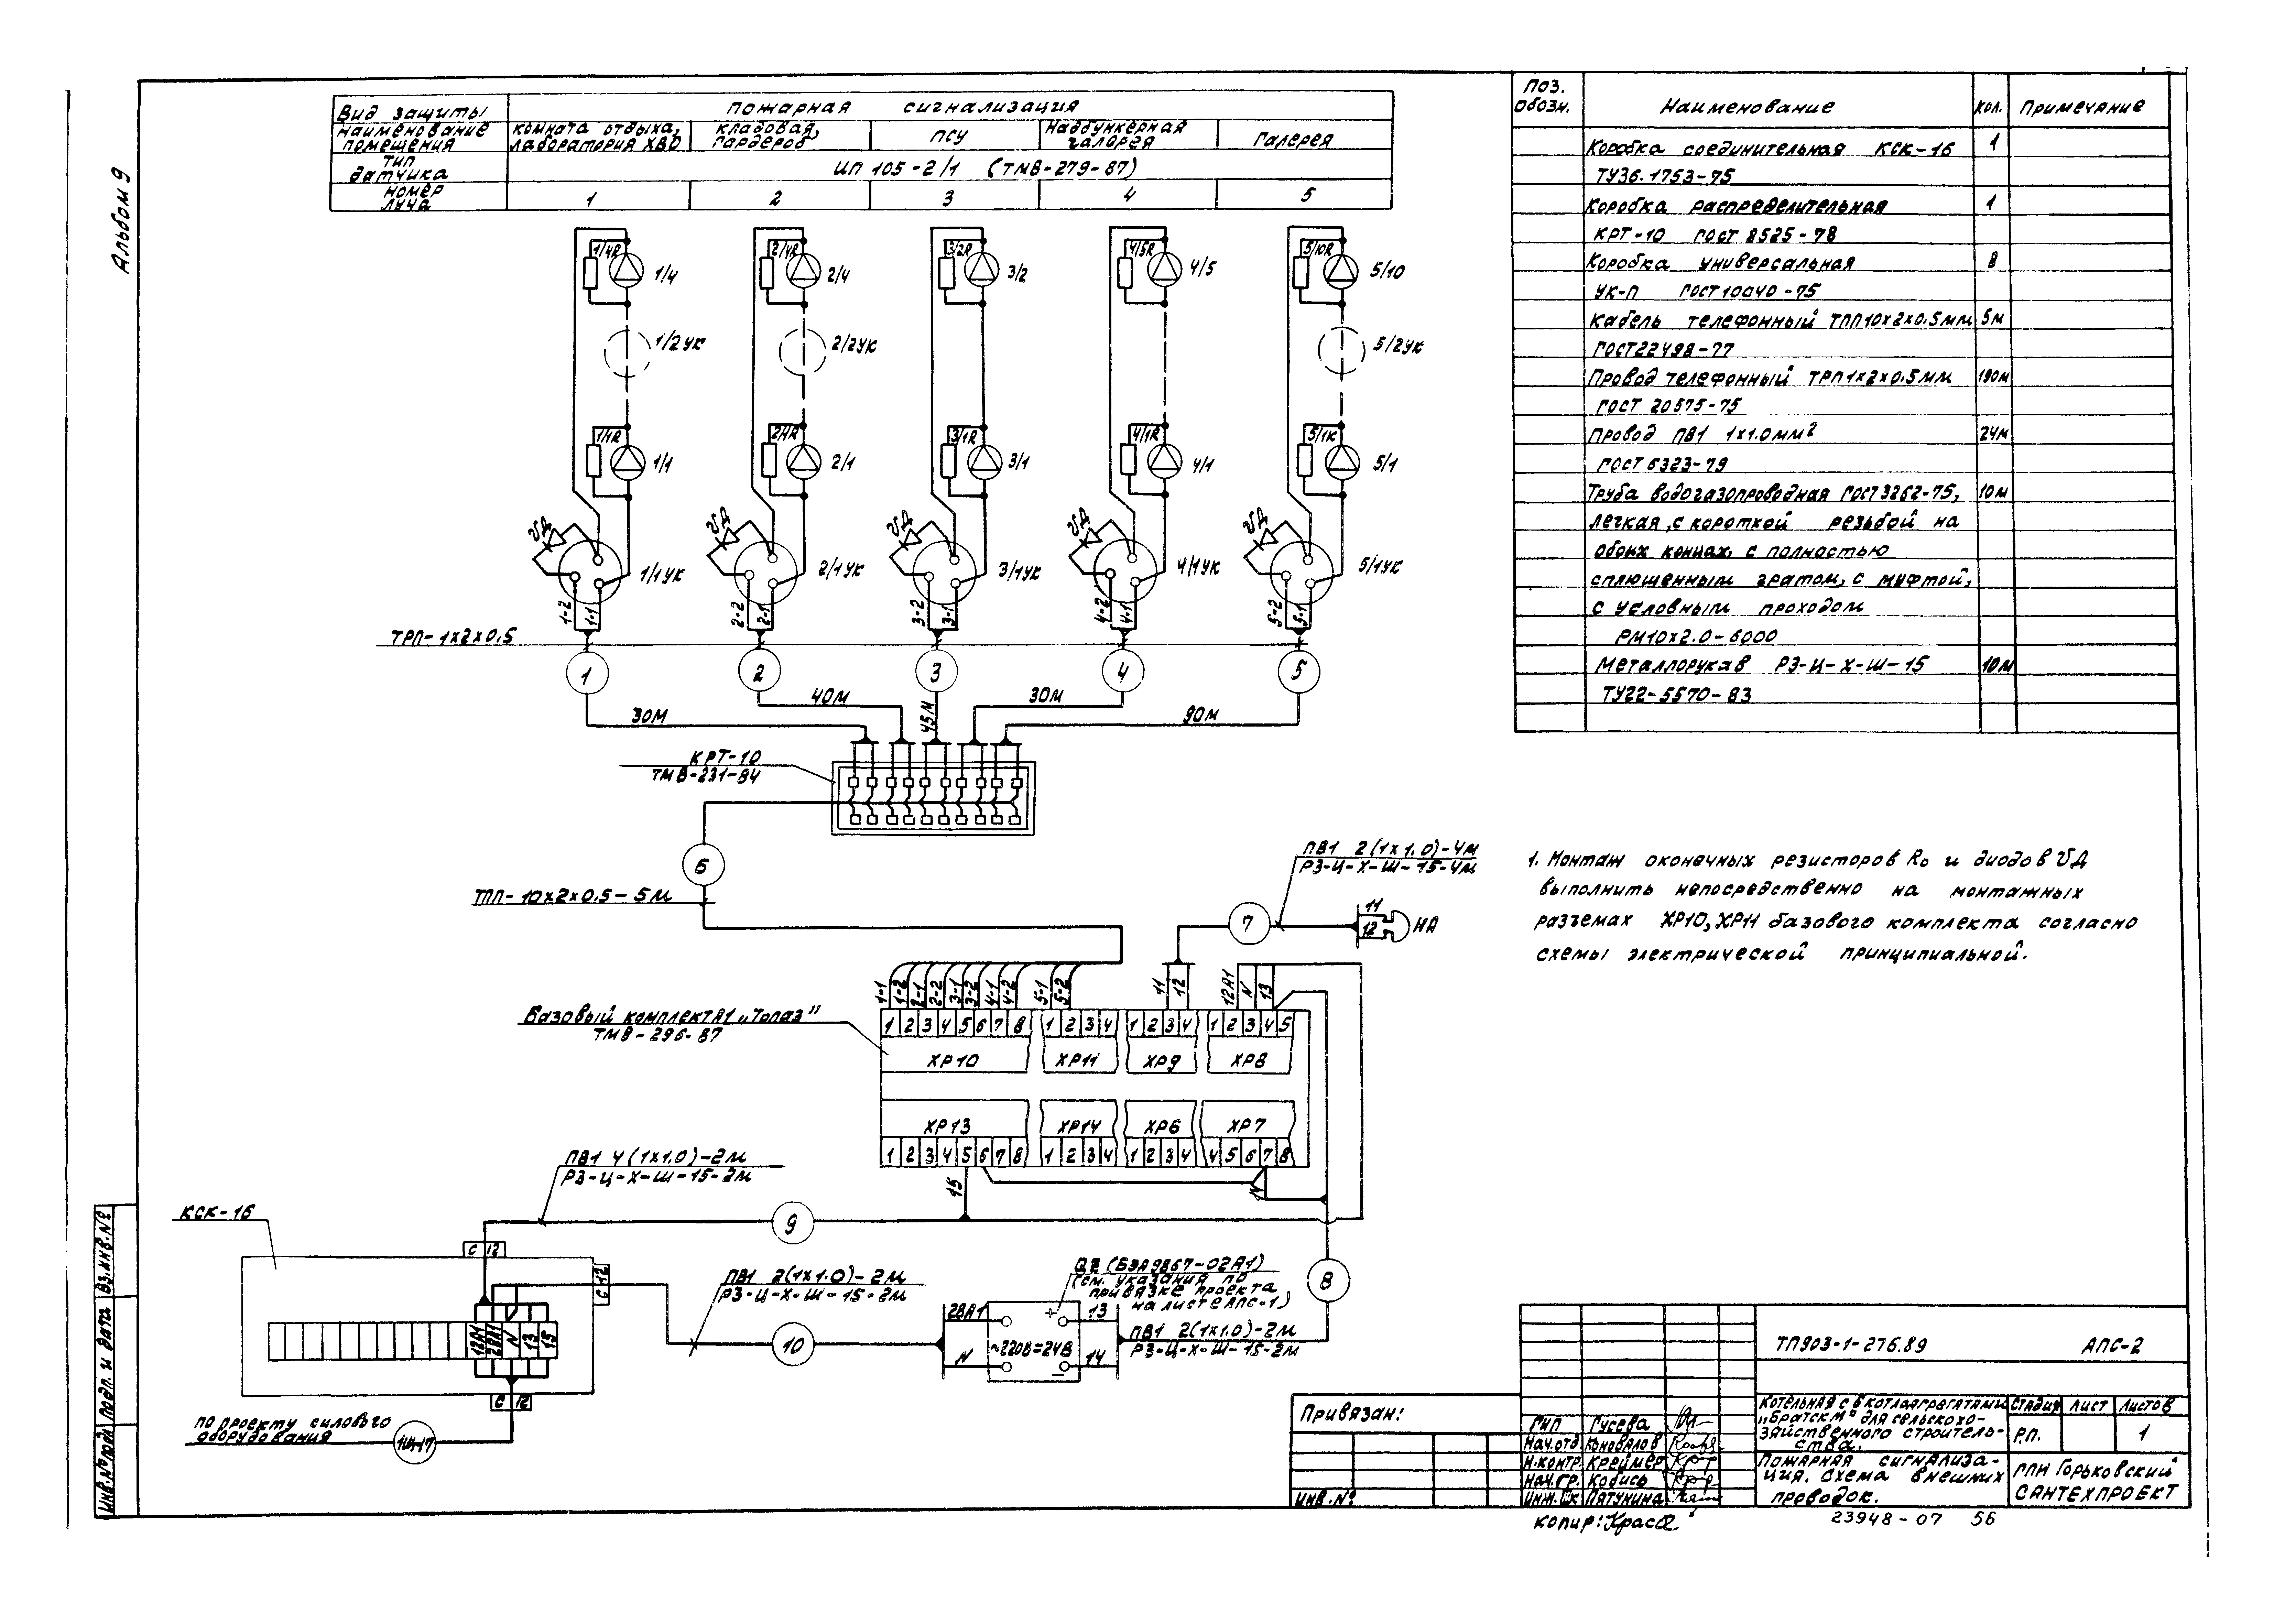 Альбом 9
Вид защиты
пожарная сигнализация
наименование помещения
комната отдыха, лаборатория ХВО
кладовая, гардероб
ПСУ
Надбункерная галерея
Галерея
тип датчика
ИП 105-2/1 (ТМ8-279-87)
номер луча
1 2 3 4 5
1/4R 1/4 2/4R 2/4 3/2R 3/2 4/5R 4/5 5/10R 5/10
1/2УК 2/2УК 5/2УК
1/1R 1/1 2/1 3/1R 3/1 4/1R 4/1 5/1 
VД VД VД VД VД
1/1УК 2/1УК 3/1УК 4/1УК 5/1УК
1-2 1-1 2-2 2-1 3-2 3-1 4-2 4-1 5-2 5-1
ТРП-1х2х0,5
1 2 3 4 5
30м 40м 45м 30м 90м
КРТ-10
ТМ8-231-84
6
ТПП-10х2х0.5-5м
ПВ1 2(1х1.0)-4м
РЗ-Ц-Х-Ш-15-4м
7
11
12
НА
1-1 1-2 2-1 2-2 3-1 3-2 4-1 4-2 5-1 5-2 11 12 12А1 N 13
Базовый комплект А1 "Топаз"
ТМ8-296-87
1 2 3 4 5 6 7 8 1 2 3 4 1 2 3 4 1 2 3 4 5
ХР10 ХР11 ХР9 ХР8
ХР13 ХР14 ХР6 ХР7
1 2 3 4 5 6 7 8 1 2 3 4 1 2 3 4 4 5 6 7 8
15 N
ПВ1 4(1х1.0)-2м
РЗ-Ц-Х-Ш-15-2м
КСК-16
9
С 12
С 12
ПВ1 2(1х1.0)-2м
РЗ-Ц-Х-Ш-15-2м
(БЭА9867-02А1)
(см. указания по
привязке проекта
на листе АПС-1)
8
12А1 N 13 15
10
28А1 + 13
~220В=24В
N - 14
ПВ1 2(1х1.0)-2м
РЗ-Ц-Х-Ш-15-2м
С 12
по проекту силового
оборудования
Поз. обозн.
Наименование
Кол.
Примечание
Коробка соединительная КСК-16 1
ТУ36.1753-75
Коробка распределительная 1
КРТ-10 ГОСТ 8525-78
Коробка универсальная 8
УК-П ГОСТ 10040-75
Кабель телефонный ТПП10х2х0.5мм 5м
ГОСТ 22498-77
Провод телефонный ТРП1х2х0.5мм 190м
ГОСТ 20575-75
Провод ПВ1 1х1.0мм² 24м
ГОСТ 6323-79
Труба водогазопроводная ГОСТ 3262-75, 10м
легкая, с короткой резьбой на
обоих концах, с полностью
сплющенным гратом, с муфтой,
с условным проходом
РМ10х2.0-6000
Металлорукав РЗ-Ц-Х-Ш-15 10м
ТУ22-5570-83
1. Монтаж оконечных резисторов R₀ и диодов VД
выполнить непосредственно на монтажных
разъемах ХР10, ХР11 базового комплекта согласно
схемы электрической принципиальной.
ТП903-1-276.89 АПС-2
Привязан:
Инв.№
ГИП Гусева
Нач.отд. Коновалов
Н.контр. Креймер
Нач.гр. Кобись
Инж. Пятунина
Котельная с 6 котлоагрегатами
"Братск м" для сельскохо-
зяйственного строитель-
ства.
Стадия Лист Листов
Р.П. 1
Пожарная сигнализа-
ция. Схема внешних
проводок.
ГПИ Горьковский
САНТЕХПРОЕКТ
Копир:
23948-07 56
Инв.№ подл. Подп. и дата Вз.инв.№